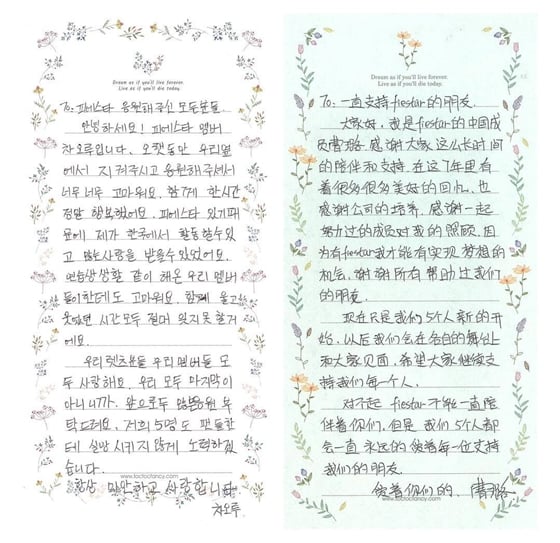 Dream as if you'll live forever.
Live as if you'll die today.
To. 피에스타 응원해주신 모든분들.
안녕하세요! 피에스타 멤버
차오루입니다. 오랫동안 우리옆
에서 지켜주시고 응원해주셔서
너무너무 고마워요. 함께 한시간
정말 행복했어요. 피에스타 있기때
문에 제가 한국에서 활동할수있
고 많은사랑을 받을수있었어요.
연습생생활 같이 해온 우리 멤버
들이한테도 고마워요. 함께 울고
웃었던 시간모두 절대 잊지못할거
에요.
우리 렛츠분들 우리멤버들 모
두 사랑해요. 우리 모두 마지막이
아니니까. 앞으로두 많은응원 부
탁드려요. 저희 5명도 팬분들한
테 실망시키지않게 노력하겠
습니다.
www.loctocfancy.com
항상 미안하고 사랑합니다
차오루.
Dream as if you'll live forever.
Live as if you'll die today.
To: 一直支持fiestar的朋友.
大家好, 我是fiestar的中国成
员曹璐. 感谢大家这么长时间
的陪伴和支持. 在这7年里有
着很多很多美好的回忆, 也
感谢公司的培养. 感谢一起
努力过的成员对我的照顾. 因
为有fiestar我才能有实现梦想的
机会. 谢谢所有帮助过我们
的朋友.
现在只是我们5个人新的开
始. 以后我们会在各自的舞台上
和大家见面, 希望大家继续支
持我们每一个人.
对不起 fiestar不能一直陪
伴着你们. 但是 我们5个人都
会一直 永远的 爱着每一位支持
我们的朋友.
www.loctocfancy.com
爱着你们的. 曹璐